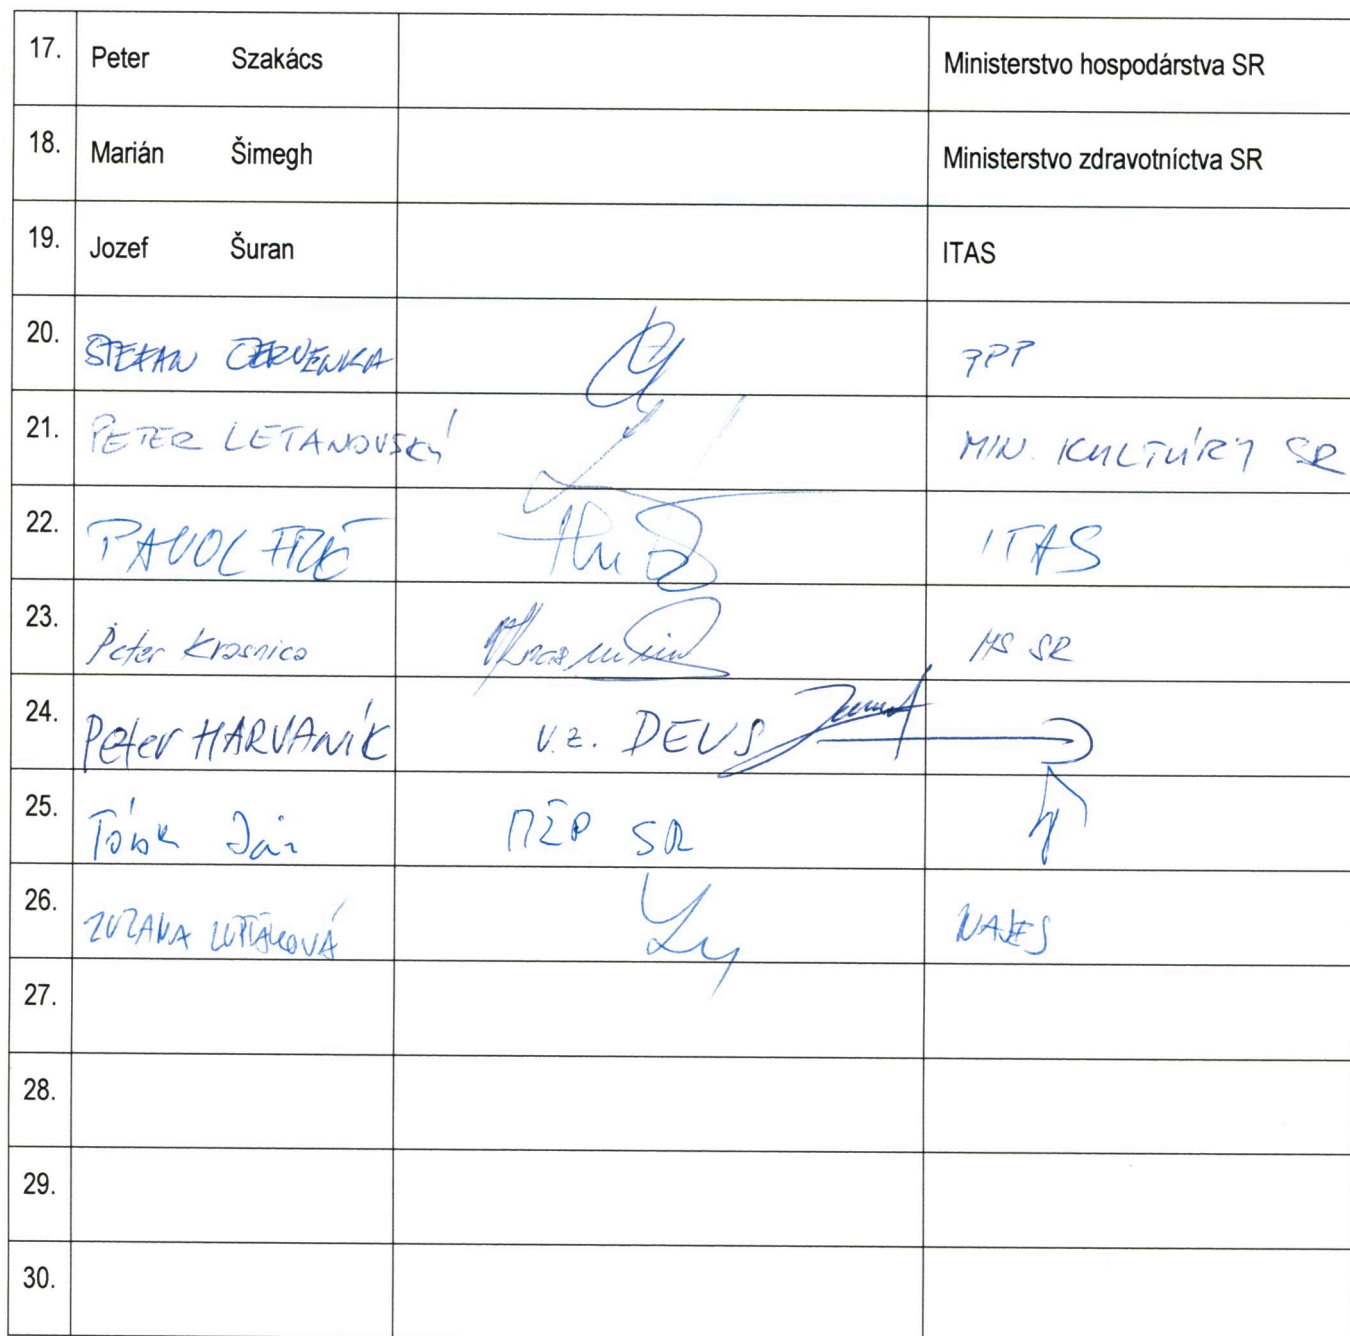 17. Peter Szakács Ministerstvo hospodárstva SR
18. Marián Šimegh Ministerstvo zdravotníctva SR
19. Jozef Šuran ITAS
20. STEFAN CERVENKA PPP
21. PETER LETANOVSKÝ MIN. KULTÚRY SR
22. PAVOL ITAS
23. Peter Krasnica MS SR
24. Peter HARVANÍK v.z. DEUS
25. Török Ján MŽP SR
26. ZUZANA NASES
27.
28.
29.
30.